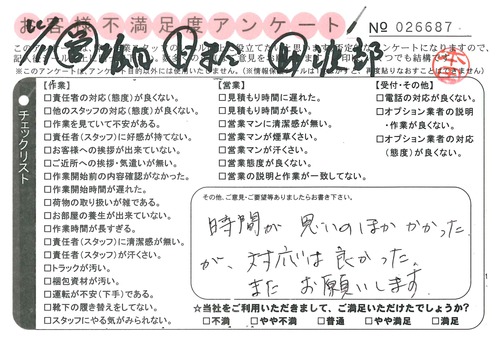 お客様不満足度アンケート
No 026687
【作業】
□責任者の対応(態度)が良くない。
□他のスタッフの対応(態度)が良くない。
□作業を見ていて不安がある。
□責任者(スタッフ)に好感が持てない。
□お客様への挨拶が出来ていない。
□ご近所への挨拶・気遣いが無い。
□作業開始前の内容確認がなかった。
□作業開始時間が遅れた。
□荷物の取り扱いが雑である。
□お部屋の養生が出来ていない。
□作業時間が長すぎる。
□責任者(スタッフ)に清潔感が無い。
□責任者(スタッフ)が汗くさい。
□トラックが汚い。
□梱包資材が汚い。
□運転が不安(下手)である。
□靴下の履き替えをしてない。
□スタッフにやる気がみられない。
【営業】
□見積もり時間に遅れた。
□見積もり時間が長い。
□営業マンに清潔感が無い。
□営業マンが煙草くさい。
□営業マンが汗くさい。
□営業態度が良くない。
□営業の説明と作業が一致してない。
【受付・その他】
□電話の対応が良くない。
□オプション業者の説明
・作業が良くない。
□オプション業者の対応
(態度)が良くない。
チェックリスト
その他、ご意見・ご要望等ありましたらお書き下さい。
時間が思いのほかかかった
が、対応は良かった。
またお願いします
☆当社をご利用いただきまして、ご満足いただけたでしょうか?
□不満 □やや不満 □普通 □やや満足 □満足